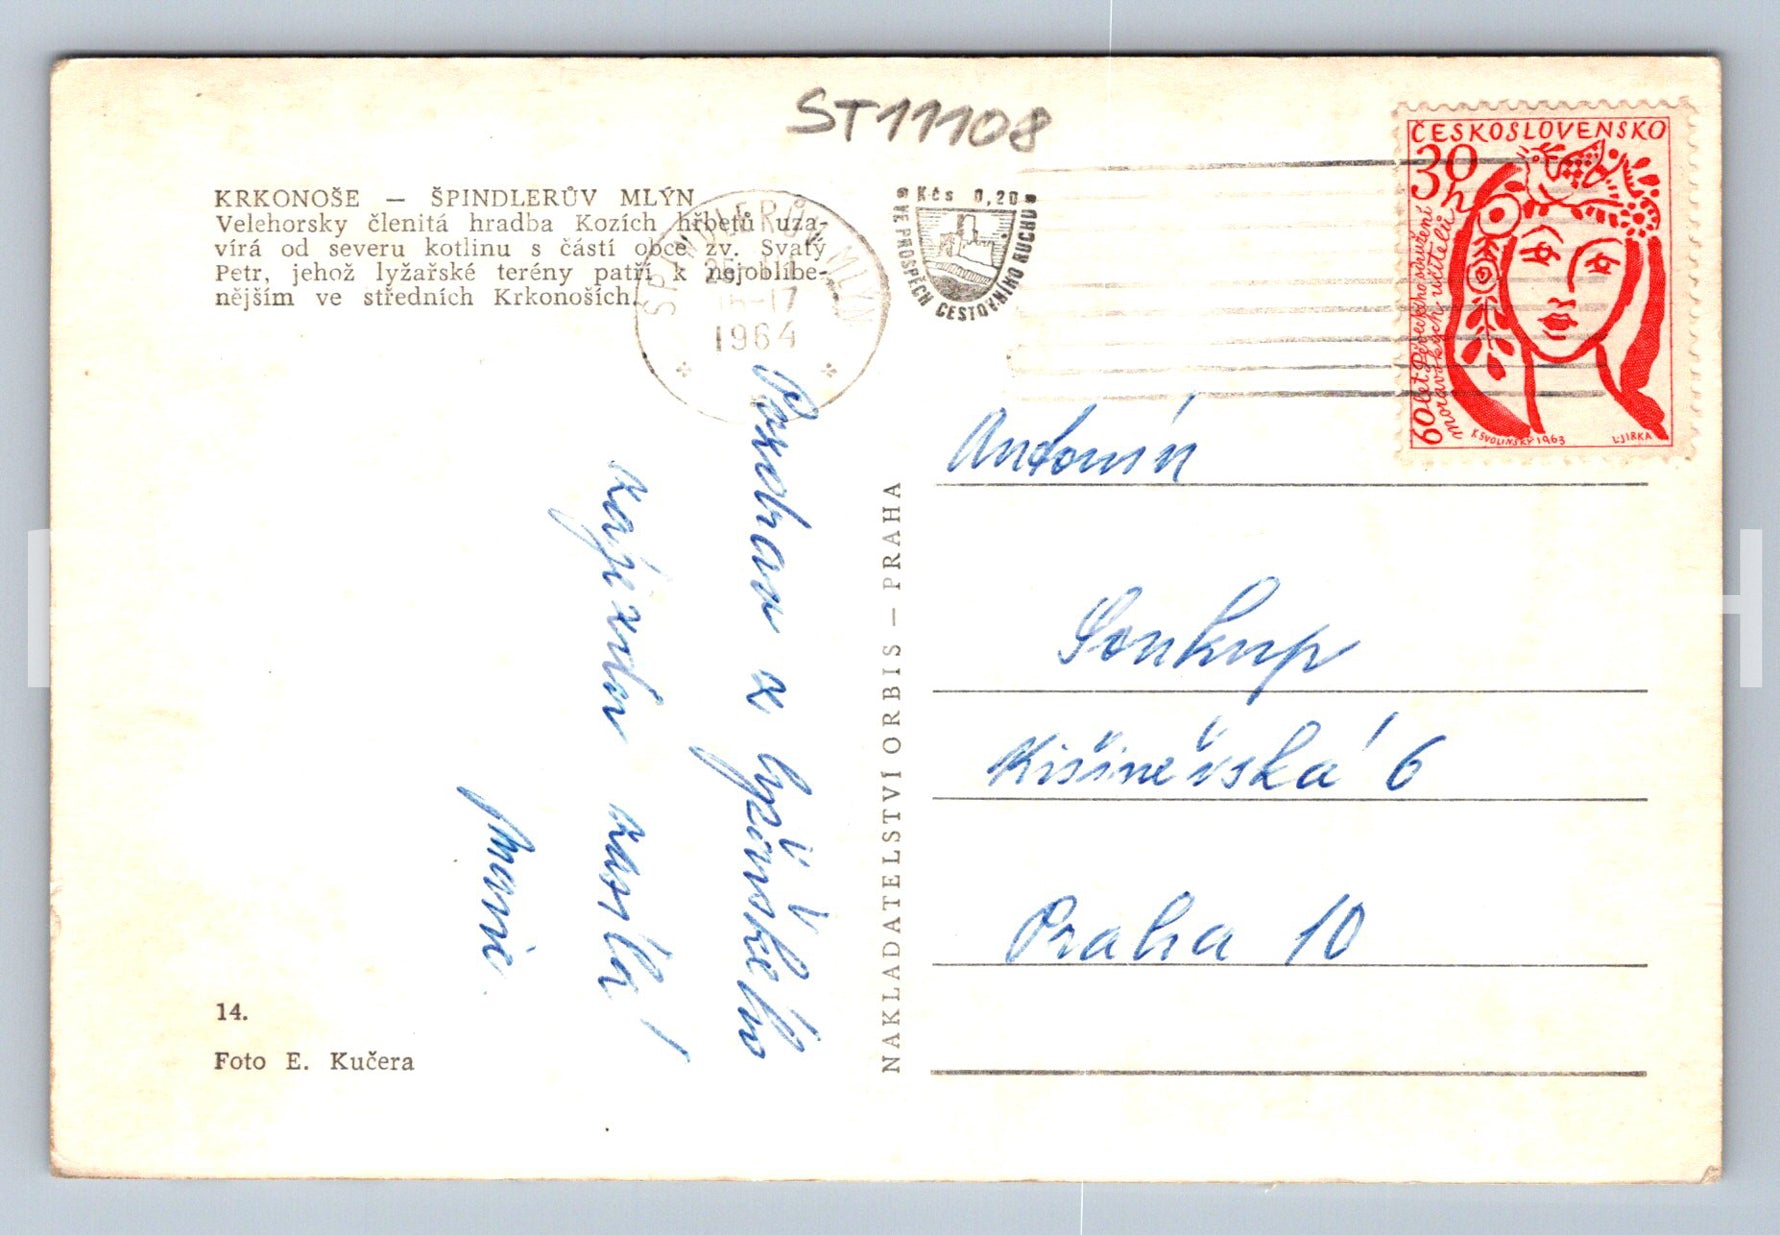 ST11108
KRKONOŠE — ŠPINDLERŮV MLÝN
Velehorsky členitá hradba Kozích hřbetů uza-
vírá od severu kotlinu s částí obce zv. Svatý
Petr, jehož lyžařské terény patří k nejoblíbe-
nějším ve středních Krkonoších.
ŠPINDLERŮV MLÝN
16-17
1964
Kčs 0,20
VE PROSPĚCH CESTOVNÍHO RUCHU
ČESKOSLOVENSKO
30 h
60 let Pěveckého sdružení
moravských učitelů
K.SVOLINSKÝ 1963
L.JIRKA
Pozdrav z lyžařského
zájezdu zasílá
NAKLADATELSTVI ORBIS — PRAHA
Antonín
Soukup
Kišiněvská 6
Praha 10
14.
Foto E. Kučera